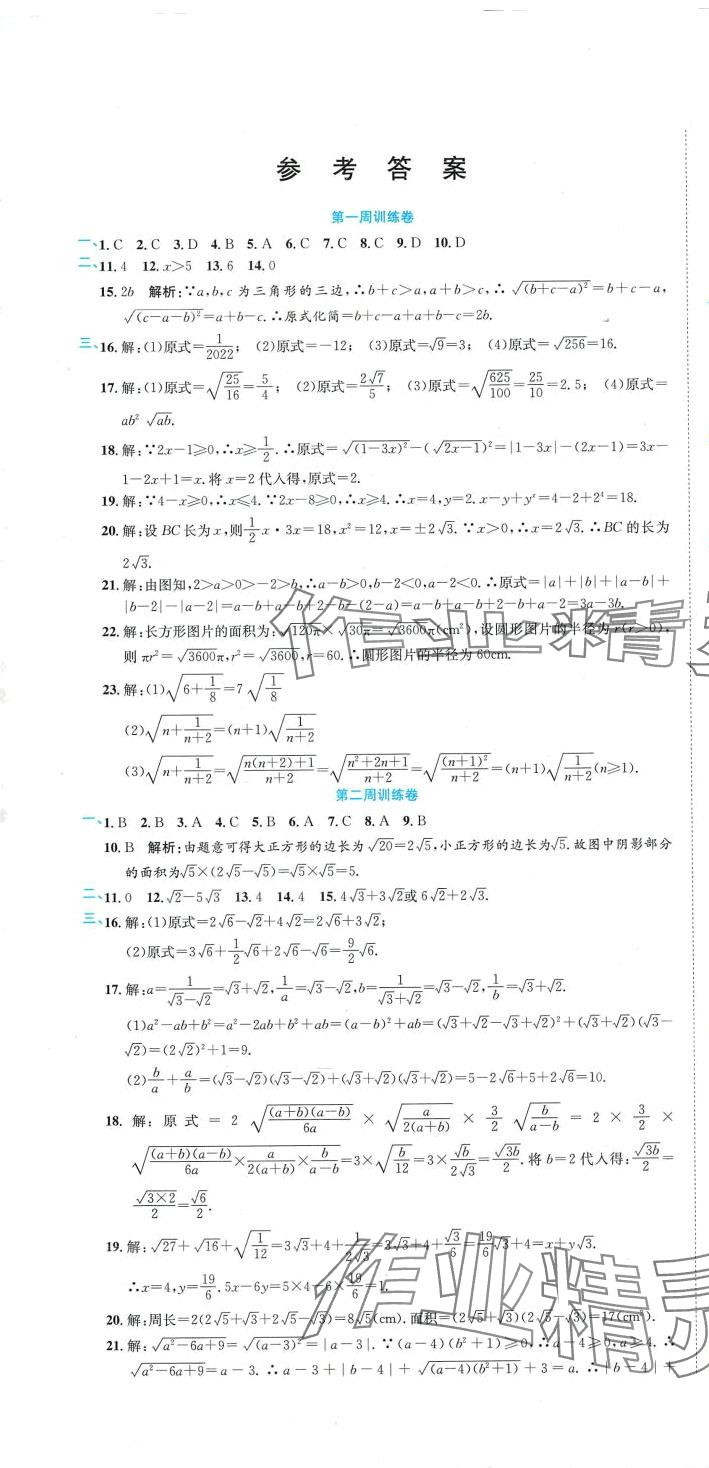 参考答案
第一周训练卷
一、1. C 2. C 3. D 4. B 5. A 6. C 7. C 8. C 9. D 10. D
二、11. 4 12. x>5 13. 6 14. 0
15. 2b 解析:∵a,b,c 为三角形的三边,∴b+c>a,a+b>c,∴ √(b+c−a)²=b+c−a,
√(c−a−b)²=a+b−c.∴原式化简=b+c−a+a+b−c=2b.
三、16. 解:(1)原式=1/2022; (2)原式=−12; (3)原式=√9=3; (4)原式=√256=16.
17. 解:(1)原式=√(25/16)=5/4; (2)原式=2√7/5; (3)原式=√(625/100)=25/10=2.5; (4)原式=
ab² √ab.
18. 解:∵2x−1≥0,∴x≥1/2.∴原式=√(1−3x)²−(√(2x−1))²=|1−3x|−(2x−1)=3x−
1−2x+1=x.将 x=2 代入得,原式=2.
19. 解:∵4−x≥0,∴x≤4.∵2x−8≥0,∴x≥4.∴x=4,y=2.x−y+yˣ=4−2+2⁴=18.
20. 解:设 BC 长为 x,则1/2x·3x=18,x²=12,x=±2√3.∵x>0,∴x=2√3.∴BC 的长为
2√3.
21. 解:由图知,2>a>0>−2>b,∴a−b>0,b−2<0,a−2<0.∴原式=|a|+|b|+|a−b|+
|b−2|−|a−2|=a−b+a−b+2−b−(2−a)=a−b+a−b+2−b−2+a=3a−3b.
22. 解:长方形图片的面积为:√120π×√30π=√3600π(cm²),设圆形图片的半径为 r(r>0),
则 πr²=√3600π,r²=√3600,r=60.∴圆形图片的半径为 60cm.
23. 解:(1)√(6+1/8)=7 √(1/8)
(2)√(n+1/(n+2))=(n+1)√(1/(n+2))
(3)√(n+1/(n+2))=√((n(n+2)+1)/(n+2))=√((n²+2n+1)/(n+2))=√((n+1)²/(n+2))=(n+1)√(1/(n+2))(n≥1).
第二周训练卷
一、1. B 2. B 3. A 4. C 5. B 6. A 7. C 8. A 9. B
10. B 解析:由题意可得大正方形的边长为√20=2√5,小正方形的边长为√5.故图中阴影部分
的面积为√5×(2√5−√5)=√5×√5=5.
二、11. 0 12. √2−5√3 13. 4 14. 4 15. 4√3+3√2或 6√2+2√3.
三、16. 解:(1)原式=2√6−√2+4√2=2√6+3√2;
(2)原式=3√6+1/2√6+2√6−√6=9/2√6.
17. 解:a=1/(√3−√2)=√3+√2,1/a=√3−√2,b=1/(√3+√2)=√3−√2,1/b=√3+√2.
(1)a²−ab+b²=a²−2ab+b²+ab=(a−b)²+ab=(√3+√2−√3+√2)²+(√3+√2)(√3−
√2)=(2√2)²+1=9.
(2)b/a+a/b=(√3−√2)(√3−√2)+(√3+√2)(√3+√2)=5−2√6+5+2√6=10.
18. 解:原式=2√((a+b)(a−b)/6a)×√(a/2(a+b))×3/2√(b/(a−b))=2×3/2×
√((a+b)(a−b)/6a×a/2(a+b)×b/(a−b))=3×√(b/12)=3×√b/2√3=√3b/2.将 b=2 代入得:√3b/2=
√(3×2)/2=√6/2.
19. 解:√27+√16+√(1/12)=3√3+4+1/2√3=3√3+4+√3/6=19/6√3+4=x+y√3.
∴x=4,y=19/6.5x−6y=5×4−6×19/6=1.
20. 解:周长=2(2√5+√3+2√5−√3)=8√5(cm).面积=(2√5+√3)(2√5−√3)=17(cm²).
21. 解:√(a²−6a+9)=√(a−3)²=|a−3|.∵(a−4)(b²+1)≥0,∴a−4≥0,a≥4.∴
√(a²−6a+9)=a−3.∴a−3+|b−4|+√((a−4)(b²+1))+3=a.∴a−3+|b−4|+
作业精灵
作业精灵